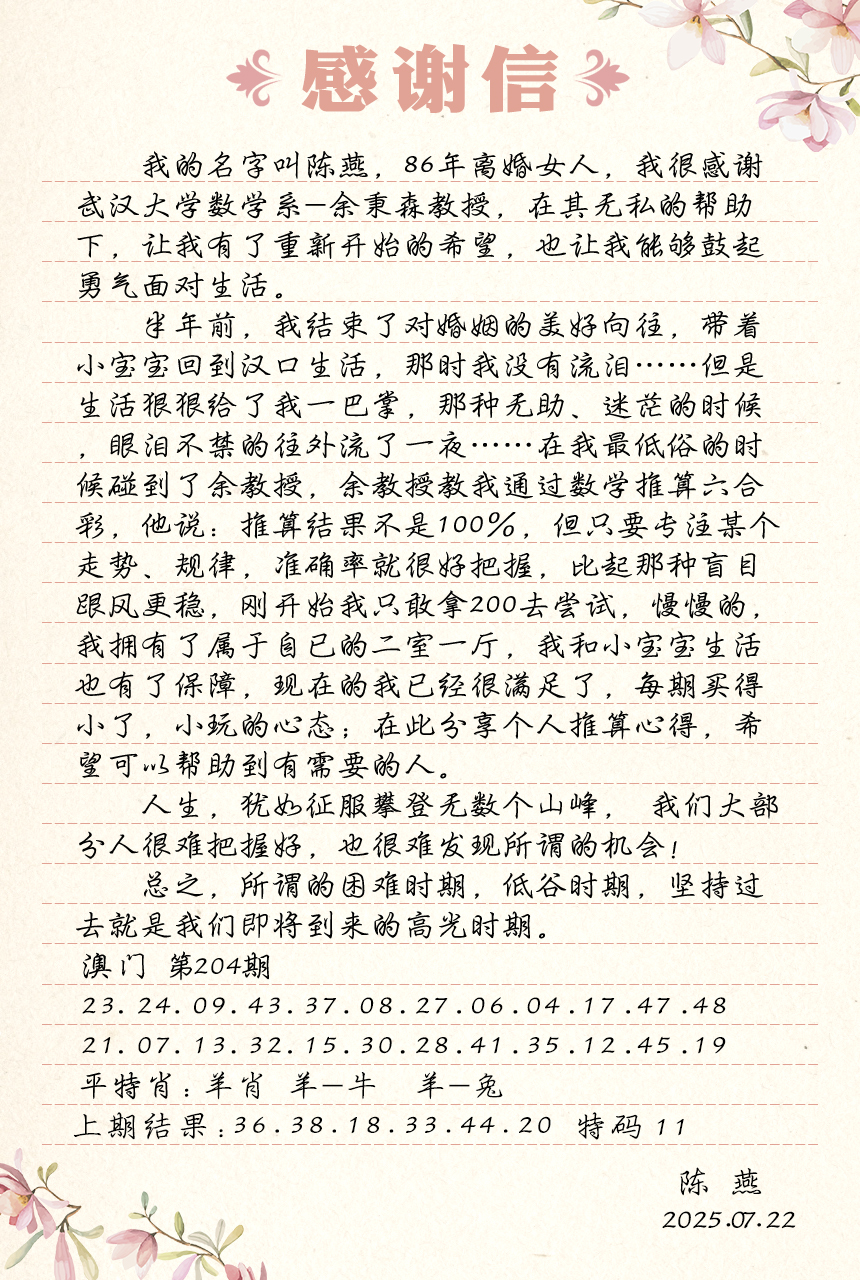 感谢信
我的名字叫陈燕，86年离婚女人，我很感谢
武汉大学数学系—余秉森教授，在其无私的帮助
下，让我有了重新开始的希望，也让我能够鼓起
勇气面对生活。
半年前，我结束了对婚姻的美好向往，带着
小宝宝回到汉口生活，那时我没有流泪……但是
生活狠狠给了我一巴掌，那种无助、迷茫的时候
，眼泪不禁的往外流了一夜……在我最低俗的时
候碰到了余教授，余教授教我通过数学推算六合
彩，他说：推算结果不是100%，但只要专注某个
走势、规律，准确率就很好把握，比起那种盲目
跟风更稳，刚开始我只敢拿200去尝试，慢慢的，
我拥有了属于自已的二室一厅，我和小宝宝生活
也有了保障，现在的我已经很满足了，每期买得
小了，小玩的心态；在此分享个人推算心得，希
望可以帮助到有需要的人。
人生，犹如征服攀登无数个山峰， 我们大部
分人很难把握好，也很难发现所谓的机会！
总之，所谓的困难时期，低谷时期，坚持过
去就是我们即将到来的高光时期。
澳门 第204期
23.24.09.43.37.08.27.06.04.17.47.48
21.07.13.32.15.30.28.41.35.12.45.19
平特肖：羊肖 羊—牛 羊—兔
上期结果：36.38.18.33.44.20 特码 11
陈 燕
2025.07.22